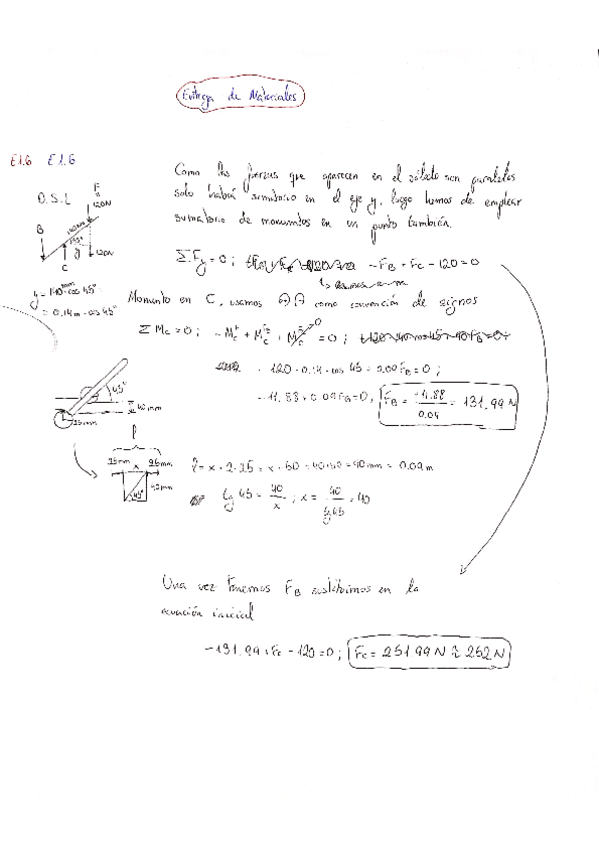 Entrega de Materiales
E1.6 E1.6
Como las fuerzas que aparecen en el sólido son paralelas
D.S.L
solo habrá sumatorio en el eje y, luego hemos de emplear
sumatorio de momentos en un punto también.
F
120N
B
C
120N
ΣFy = 0; -FB + Fc - 120 = 0
y = 140mm·cos 45°
= 0.14m·cos 45°
Momento en C, usamos como convención de signos
ΣMc = 0;
= 0;
120·0.14·cos 45 - 0.09FB = 0;
-11.88 + 0.09FB = 0,
FB =
0.09
= 131.99 N
45°
40mm
25mm
25mm x 25mm
40mm
45°
x + 2·25 = x + 50 = 40+50 = 90mm = 0.09m
tg 45 = 40/x ; x = 40/tg45 = 40
Una vez tenemos FB sustituimos en la
ecuación inicial
-131.99 + Fc - 120 = 0; Fc = 251.99 N ≈ 252 N